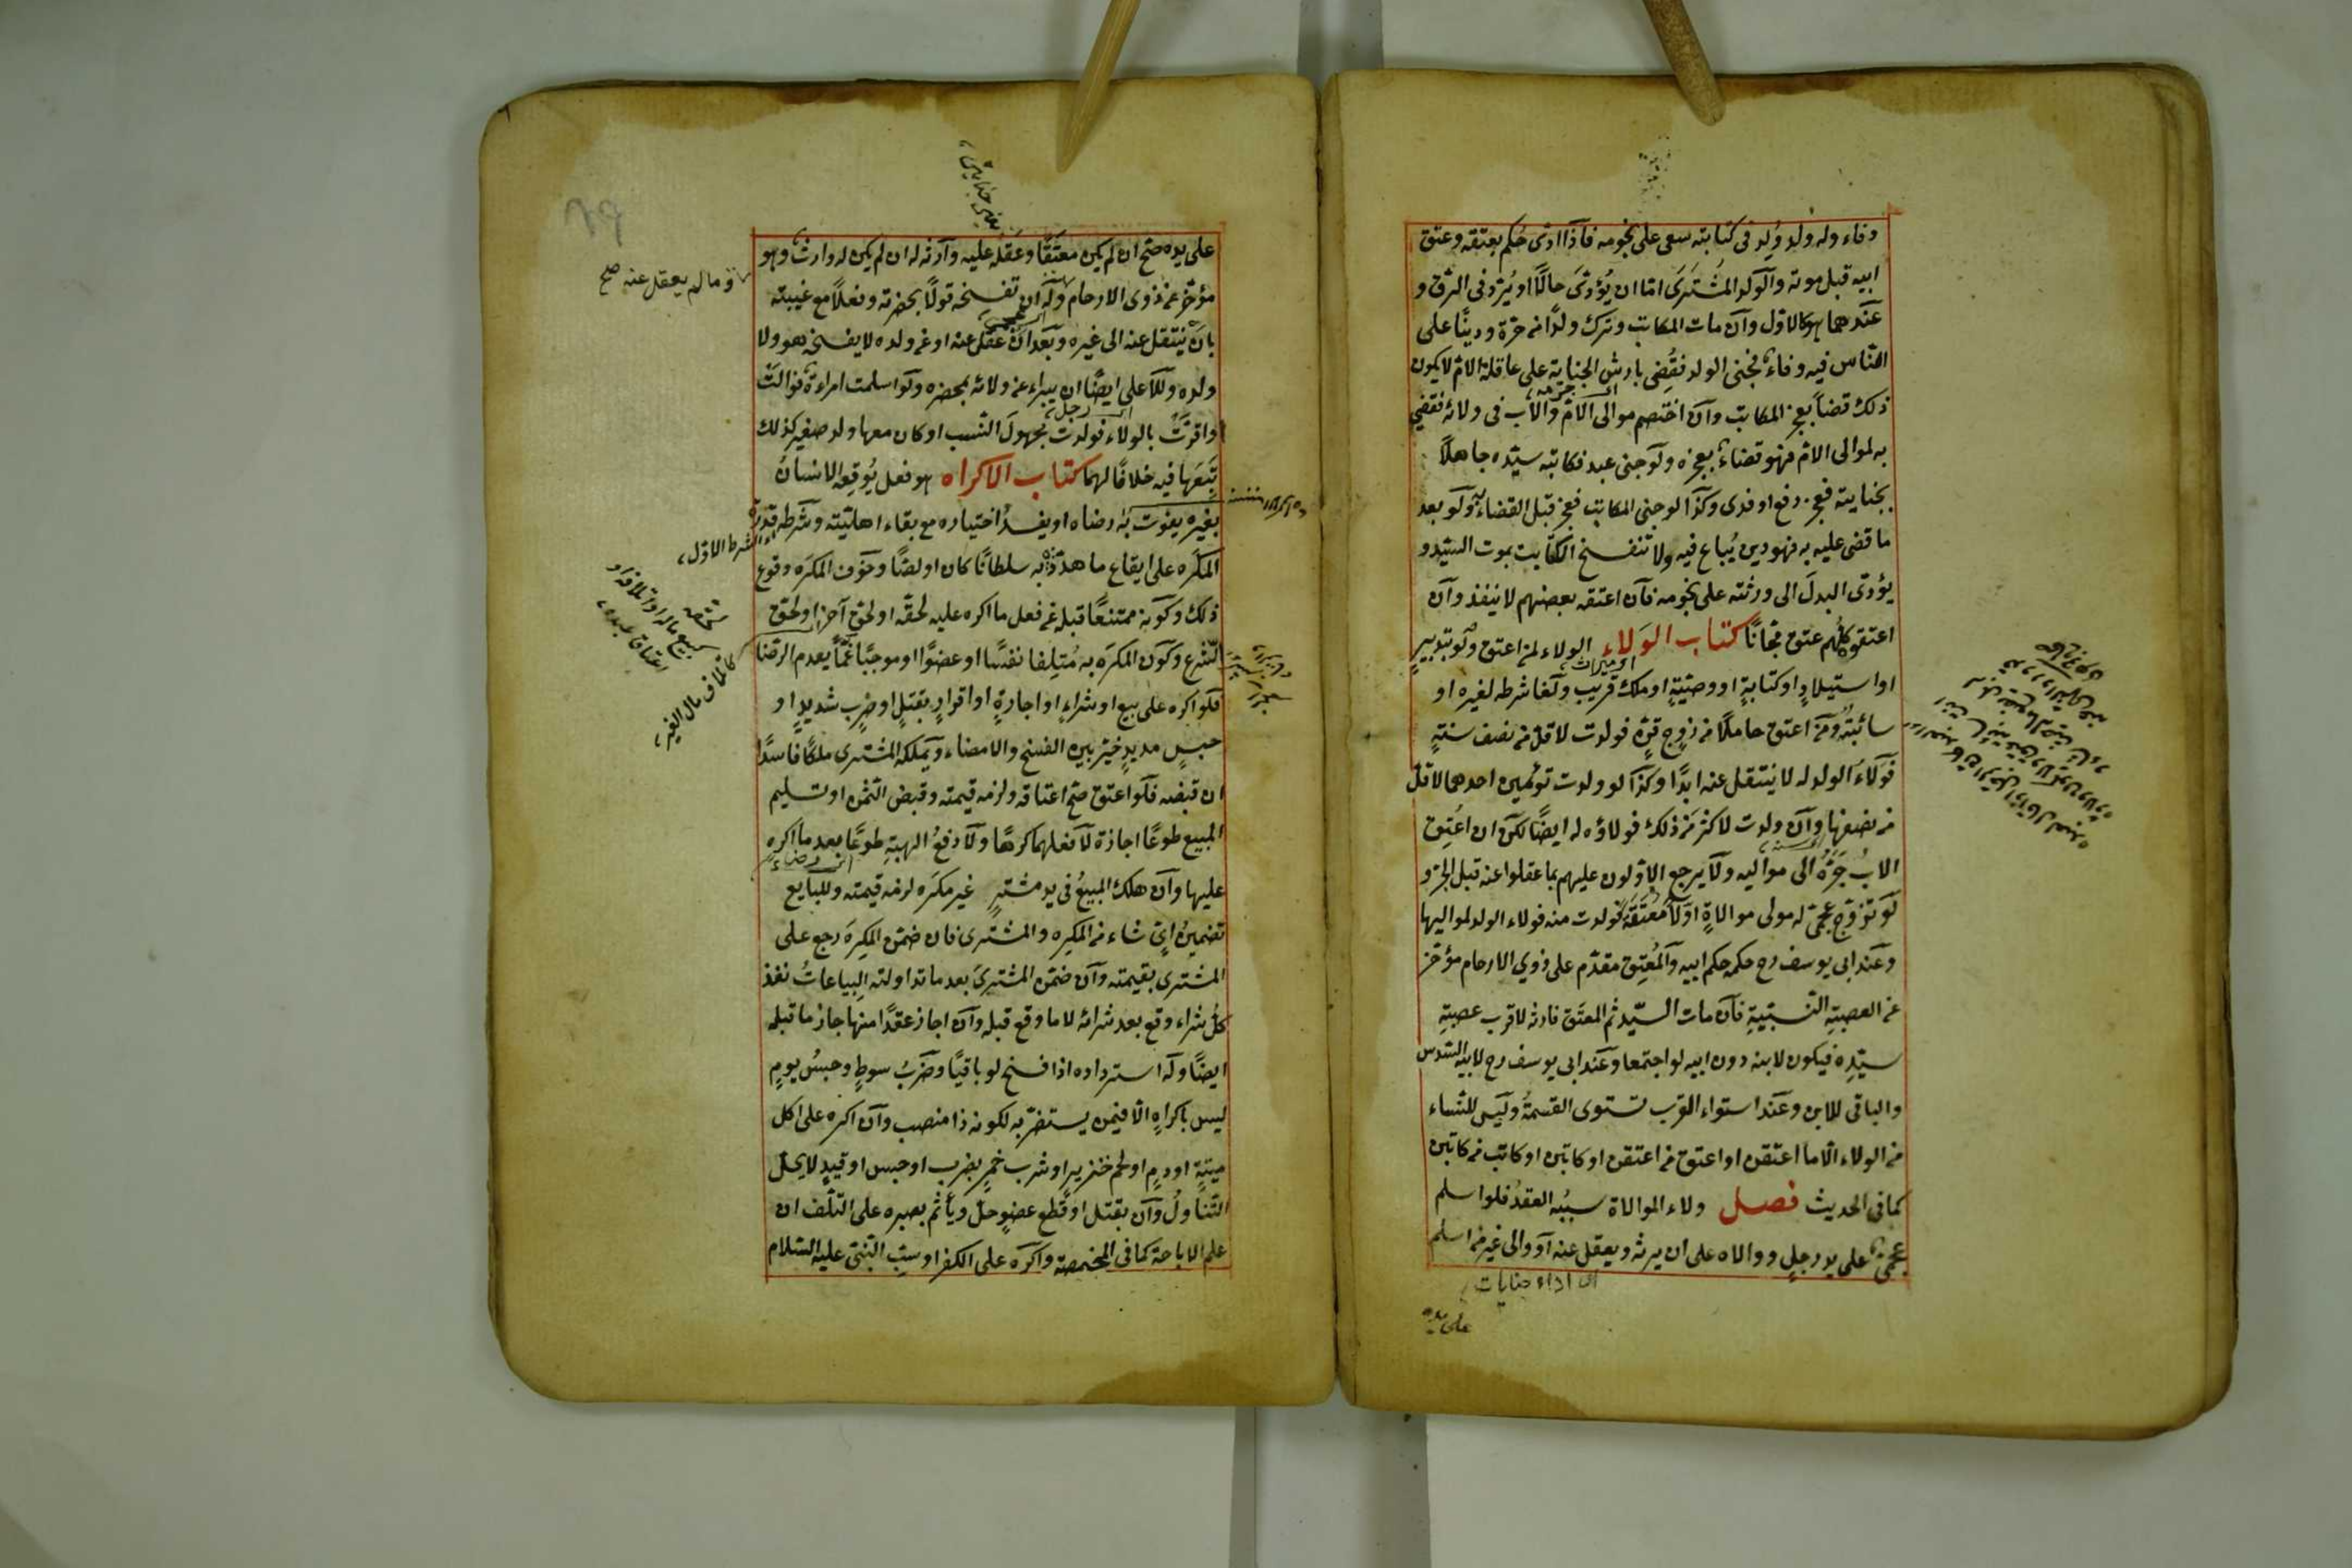 وفاء وله ولد وُلِد فى كتابته سعى على نجومه فاذا ادّى حُكم بعتقه وعتق
ابيه قبل موته والولد المُشترَى امّا ان يُؤدّىَ حالًّا او يُردّ فى الرقّ و
عندهما هو كالاول وان مات المكاتب وترك ولدًا من حرّة ودينًا على
الناس فيه وفاءٌ فجنى الولد فقُضِى بارش الجناية على عاقلة الامّ لا يكون
ذلك قضاءً بعجز المكاتب وان اختصم موالى الامّ والاب فى ولائه فقضى
به لموالى الامّ فهو قضاءٌ بعجزه ولو جنى عبد فكاتبه سيّده جاهلًا
بجنايته فعجز دفع او فدى وكذا لو جنى المكاتب فعجز قبل القضاء به ولو بعد
ما قضى عليه به فهو دين يُباع فيه ولا تنفسخ الكتابت بموت السيّد و
يؤدّى البدلَ الى ورثته على نجومه فان اعتقه بعضهم لا ينفذ وان
اعتقوه كلّهم عتق مجّانًا كتاب الوَلاء الولاء لمن اعتق ولو بتدبيرٍ
او استيلادٍ او كتابةٍ او وصيّةٍ او ملك قريب ولغا شرطه لغيره او
سائبةٌ ومن اعتق حاملًا من زوجٍ قنٍّ فولدت لاقلّ من نصف سنةٍ
فولاءُ الولد له لا ينتقل عنه ابدًا وكذا لو ولدت توئمين احدهما لاقل
من نصفها وان ولدت لاكثر من ذلك فولاؤه له ايضًا لكن ان اعتِق
الابُ جَرَّهُ الى مواليه ولا يرجع الاوّلون عليهم بما عقلوا عنه قبل الجرّ و
لو تزوّج عجمىّ له مولى موالاةٍ او لا مُعتَقةً فولدت منه فولاء الولد لمواليها
وعند ابى يوسف رح حكمه حكم ابيه والمُعتِق مقدّم على ذوي الارحام مؤخّر
عن العصبةِ النَّسبيّةِ فان مات السيّد ثم المعتَق فارثه لاقرب عصبةِ
سيّدِه فيكون لابنه دون ابيه لو اجتمعا وعند ابى يوسف رح لابيه السّدس
والباقى للابن وعند استواء القرب تستوى القسمةُ وليس للنّساء
من الولاء الّا ما اعتقن او اعتق من اعتقن او كاتبن او كاتب من كاتبن
كما فى الحديث فصل ولاء الموالاة سببُه العقدُ فلو اسلم
عجمىّ على يد رجلٍ ووالاه على ان يرثه ويعقل عنه او والى غير من اسلم
اى اداء جنايات
على يده
يعنى جنايتى
على يده صحّ ان لم يكن معتَقًا وعَقلُه عليه وارثه له ان لم يكن له وارثٌ وهو
مؤخّر عن ذوى الارحام وله ان يفسخه قولًا بحضرته وفعلًا مع غيبته
ما لم يعقل عنه صح
بان ينتقل عنه الى غيره وبعد ان عقل عنه او عن ولده لا يفسخه هو ولا
ولده وللاعلى ايضًا ان يبراء عن ولائه بمحضره ولو اسلمت امراءةٌ فوالت
او اقرّتْ بالولاء فولدت مجهولَ النّسب او كان معها ولد صغير كذلك
تَبِعَها فيه خلافًا لهما كتاب الاكراه هو فعل يُوقِعه الانسانُ
بغيره يفوت به رضاه او يفسدُ اختياره مع بقاء اهليّته وشرطه قدرة
المكرِه على ايقاع ما هدّد به سلطانًا كان او لصًّا وخوف المكرَه وقوع
ذلك وكونه ممتنعًا قبله عن فعل ما اكره عليه لحقّه او لحقّ آخر او لحقّ
الشّرع وكون المكرَه به مُتلِفا نفسًا او عضوًا او موجبًا غمًّا يعدم الرضا
فلو اكره على بيع او شراءٍ او اجارةٍ او اقرارٍ بقتلٍ او ضربٍ شديدٍ او
حبسٍ مديدٍ خيّر بين الفسخ والامضاء ويملكه المشترى ملكًا فاسدًا
ان قبضه فلو اعتق صحّ اعتاقه ولزمه قيمته وقبض الثمن او تسليم
المبيع طوعًا اجازة لا فعلهما كرهًا ولا دفعُ الهبةِ طوعًا بعد ما اكره
عليها وان هلك المبيعُ فى يد مشترٍ غير مكرَه لزمه قيمته وللبايع
تضمينُ ايٍّ شاء من المكرِه والمشترى فان ضمّن المكرِهَ رجع على
المشترى بقيمته وان ضمّن المشترىَ بعد ما تداولته البياعاتُ نفذ
كلّ شراء وقع بعد شرائه لا ما وقع قبله وان اجاز عقدًا منها جاز ما قبله
ايضًا وله استرداده اذا فسخ لو باقيًا وضربُ سوطٍ وحبسُ يومٍ
ليس باكراهٍ الّا فيمن يستضرّ به لكونه ذا منصب وان اكره على اكل
ميتةٍ او دمٍ او لحم خنزيرٍ او شرب خمرٍ بضرب او حبس او قيدٍ لا يحلّ
التناولُ وان بقتل او قطع عضوٍ حلّ ويأثم بصبره على التّلف ان
علم الاباحة كما فى المخمصة واكره على الكفر او سبّ النّبىّ عليه السّلام
الشرط الاوّل
كبيع ماله او اتلافه او
اعتاق عبده
كاتلاف مال الغير